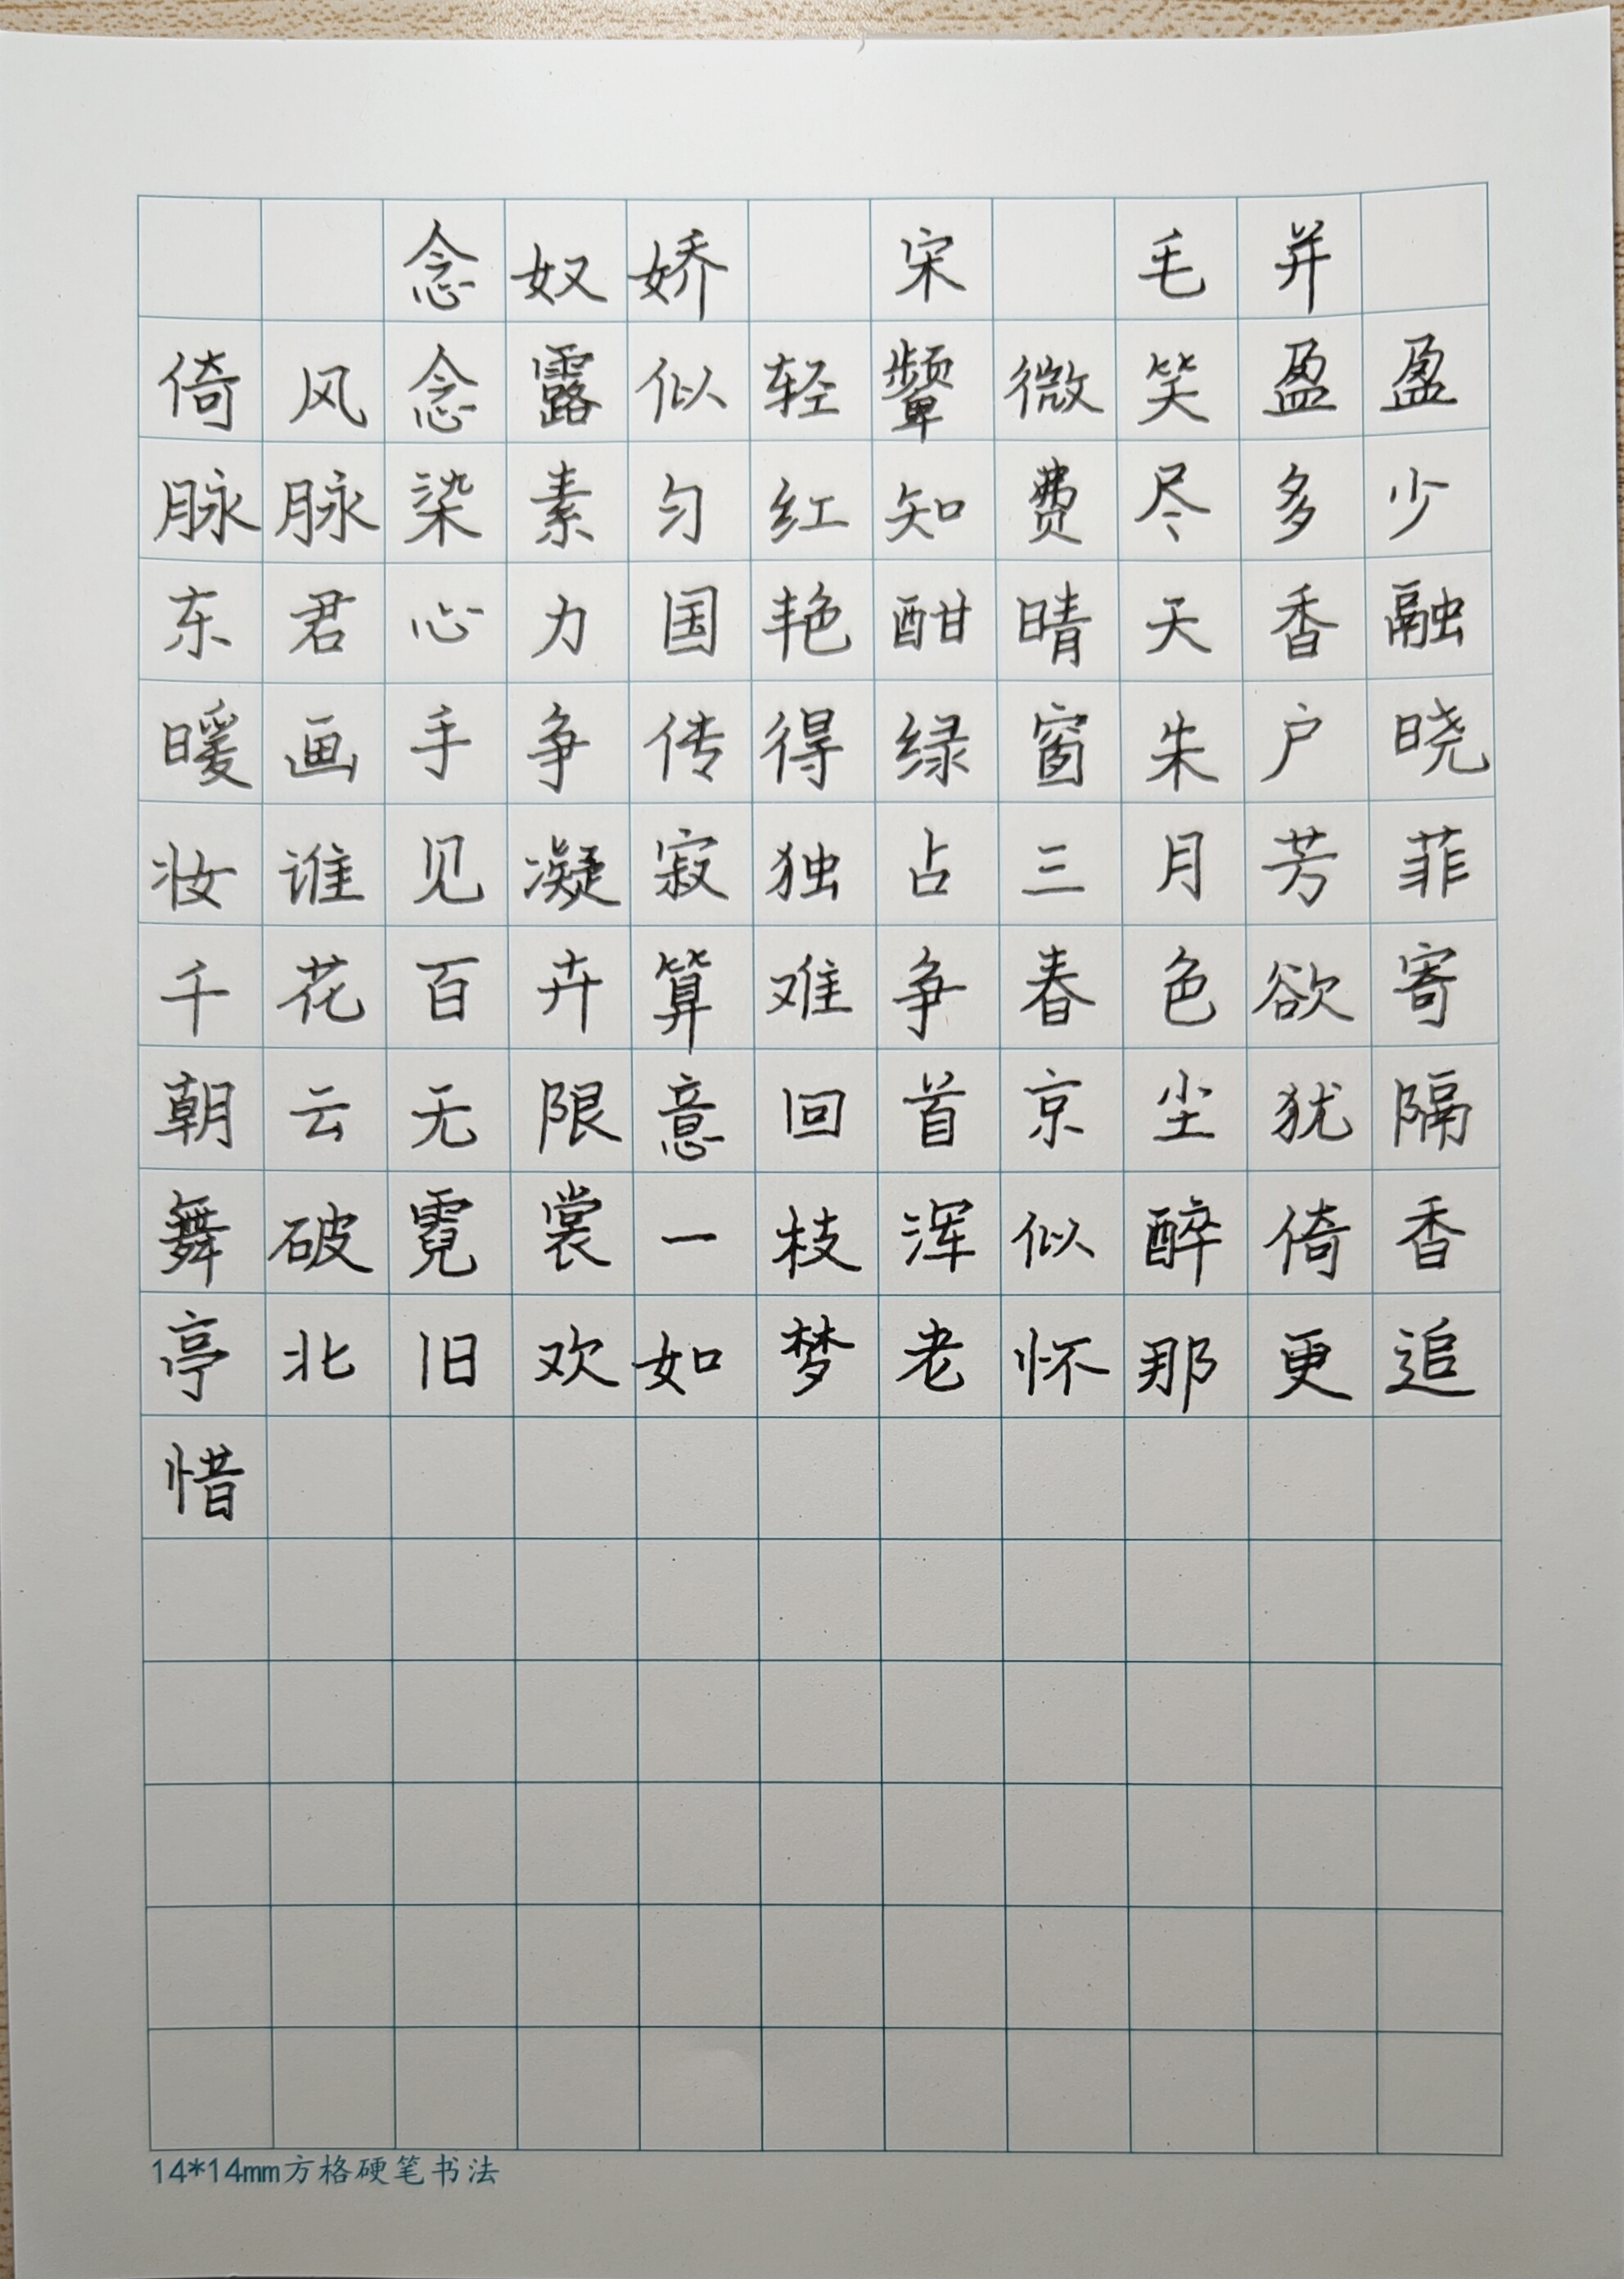 念奴娇 宋 毛并
倚风念露似轻颦微笑盈盈
脉脉染素匀红知费尽多少
东君心力国艳酣晴天香融
暖画手争传得绿窗朱户晓
妆谁见凝寂独占三月芳菲
千花百卉算难争春色欲寄
朝云无限意回首京尘犹隔
舞破霓裳一枝浑似醉倚香
亭北旧欢如梦老怀那更追
惜
14*14mm方格硬笔书法